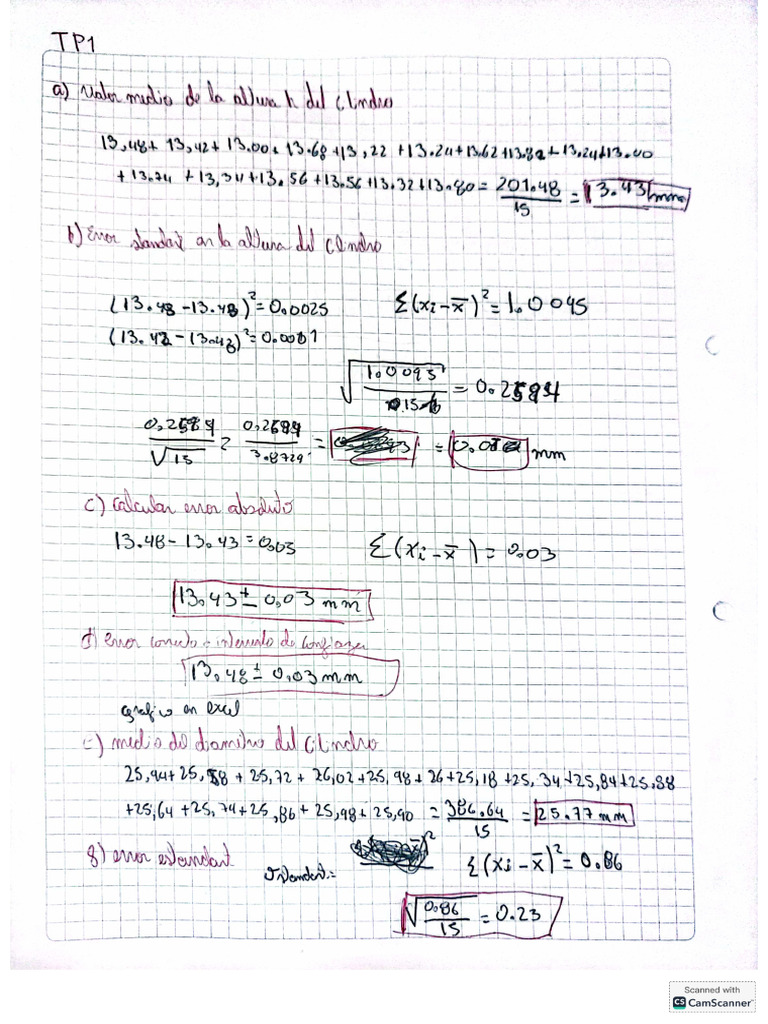 TP1
a) Valor medio de la altura h del Cilindro
13,48+ 13,42+13.00+13.68+13,22 +13.24+13.62+13.82+13.24+13.40
+13.74 +13,34+13.56+13.56+13.32+13.80= 201.48/15 = 13.43mm
b) Error standart en la altura del Cilindro
(13.48-13.43)²=0.0025 Σ(xi-x̄)²=1.0095
(13.42-13.43)²=0.0001
√1.0095/15 = 0.2594
0.2589/√15 = 0.2589/3.8729 = = mm
c) Calcular error absoluto
13.48-13.43=0.05 Σ(xi-x̄)=0.03
13.43±0.03mm
d) error correcto intervalo de confianza
13.48±0.03mm
Grafico en excel
e) medio del diametro del Cilindro
25,94+25,58+25,72+26,02+25,98+26+25,18+25,34+25,84+25,88
+25,64+25,74+25,86+25,98+25,90 = 386.64/15 = 25.77mm
g) error estandart standart= Σ(xi-x̄)²=0.86
√0.86/15=0.23
Scanned with
CS CamScanner